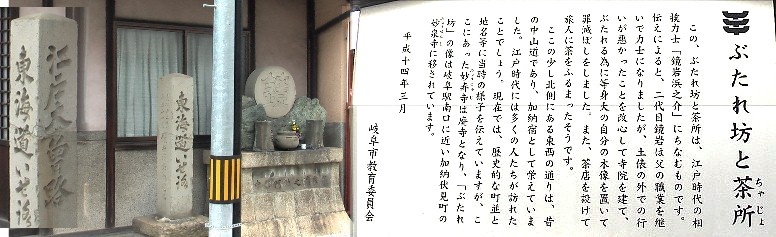 ぶたれ坊と茶所
ちゃじょ
この、ぶたれ坊と茶所は、江戸時代の相
撲力士「鏡岩浜之介」にちなむものです。
伝えによると、二代目鏡岩は父の職業を継
いで力士になりましたが、土俵の外での行
いが悪かったことを改心して寺院を建て、
ぶたれる為に等身大の自分の木像を置いて
罪滅ぼしをしました。また、茶店を設けて
旅人に茶をふるまったそうです。
ここの少し北側にある東西の通りは、昔
の中山道であり、加納宿として栄えていま
した。江戸時代には多くの人たちが訪れた
ことでしょう。現在では、歴史的な町並と
地名等に当時の様子を伝えていますが、こ
こにあった妙寿寺は廃寺となり、「ぶたれ
坊」の像は岐阜駅南口に近い加納伏見町の
妙泉寺に移されています。
平成十四年三月
岐阜市教育委員会
東海道いせ路
東海道いせ路